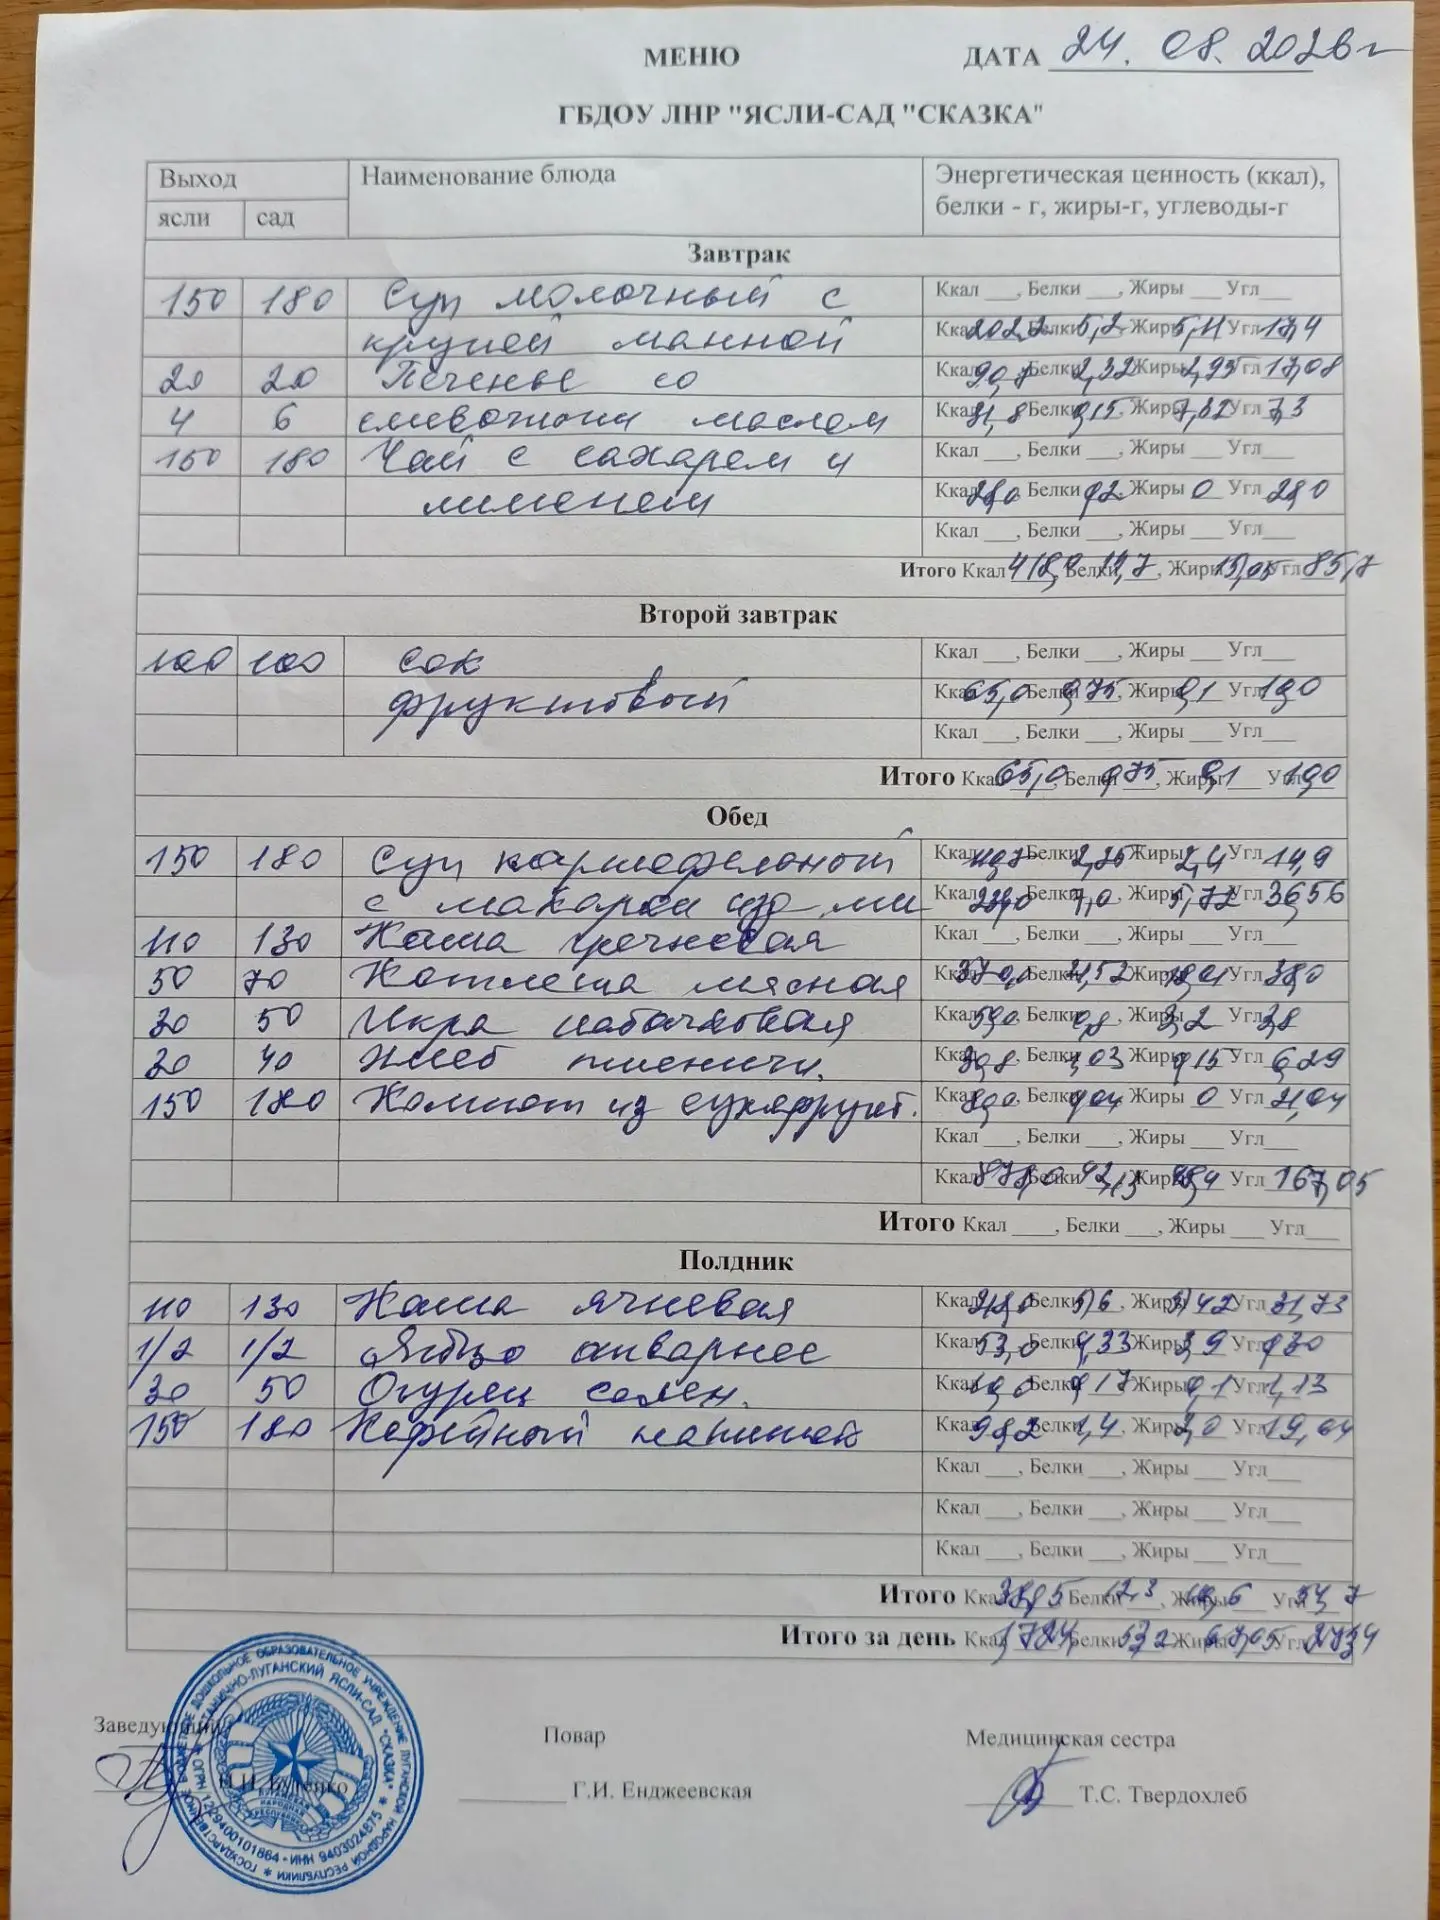 МЕНЮ ДАТА 24. 08. 2026г
ГБДОУ ЛНР "ЯСЛИ-САД "СКАЗКА"
Выход Наименование блюда Энергетическая ценность (ккал),
ясли сад белки - г, жиры-г, углеводы-г
Завтрак
150 180 Суп молочный с Ккал ___, Белки ___, Жиры ___ Угл___
крупой манной Ккал 202,2 Белки 5,2, Жиры 5,11 Угл 17,4
20 20 Печенье со Ккал 90,8 Белки 2,32 Жиры 2,95 Угл 17,08
4 6 сливочным маслом Ккал 31,8 Белки 0,15 Жиры 7,32 Угл 7,3
150 180 Чай с сахаром и Ккал ___, Белки ___, Жиры ___ Угл___
лимоном Ккал 28,0, Белки 0,2, Жиры 0 Угл 28,0
Ккал ___, Белки ___, Жиры ___ Угл___
Итого Ккал 418,0, Белки 11,7, Жиры 15,05 Угл 85,7
Второй завтрак
100 100 сок Ккал ___, Белки ___, Жиры ___ Угл___
фруктовый Ккал 65,0 Белки 0,75, Жиры 0,1 Угл 19,0
Ккал ___, Белки ___, Жиры ___ Угл___
Итого Ккал 65,0, Белки 0,75, Жиры 0,1 Угл 19,0
Обед
150 180 Суп картофельный Ккал Белки 2,25 Жиры 2,4 Угл 14,9
с макарон изд ми Ккал Белки 7,0, Жиры 5,72 Угл 36,56
110 130 Каша гречневая Ккал ___, Белки ___, Жиры ___ Угл___
50 70 Котлета мясная Ккал 370,0 Белки Жиры Угл 38,0
30 50 Икра кабачковая Ккал 59,0 Белки 0,8 Жиры 3,2 Угл 3,8
30 40 Хлеб пшеничн. Ккал Белки 1,03 Жиры 0,15 Угл 6,29
150 180 Компот из сухофрукт. Ккал 80,0, Белки 0,04 Жиры 0 Угл 21,04
Ккал ___, Белки ___, Жиры ___ Угл___
Ккал 878,0 Белки 42,13 Жиры Угл 167,05
Итого Ккал ____, Белки ___, Жиры ___ Угл___
Полдник
110 130 Каша ячневая Ккал Белки 5,6, Жиры 5,42 Угл 31,73
1/2 1/2 Яйцо отварное Ккал 53,0 Белки 4,33 Жиры 3,9 Угл 0,30
30 50 Огурец солен. Ккал 10,0 Белки 0,17 Жиры 0,1 Угл 1,13
150 180 Кофейный напиток Ккал 98,2 Белки 1,4, Жиры 2,0 Угл 19,04
Ккал ___, Белки ___, Жиры ___ Угл___
Ккал ___, Белки ___, Жиры ___ Угл___
Ккал ___, Белки ___, Жиры ___ Угл___
Итого Ккал Белки 12,3, Жиры Угл
Итого за день Ккал Белки Жиры 67,05 Угл
Заведующий Повар Медицинская сестра
Г.И. Енджеевская Т.С. Твердохлеб
ГОСУДАРСТВЕННОЕ БЮДЖЕТНОЕ ДОШКОЛЬНОЕ ОБРАЗОВАТЕЛЬНОЕ УЧРЕЖДЕНИЕ ЛУГАНСКОЙ НАРОДНОЙ РЕСПУБЛИКИ
СТАНИЧНО-ЛУГАНСКИЙ ЯСЛИ-САД "СКАЗКА"
ОГРН 1229400101864 - ИНН 9403024875
ЛУГАНСКАЯ НАРОДНАЯ РЕСПУБЛИКА